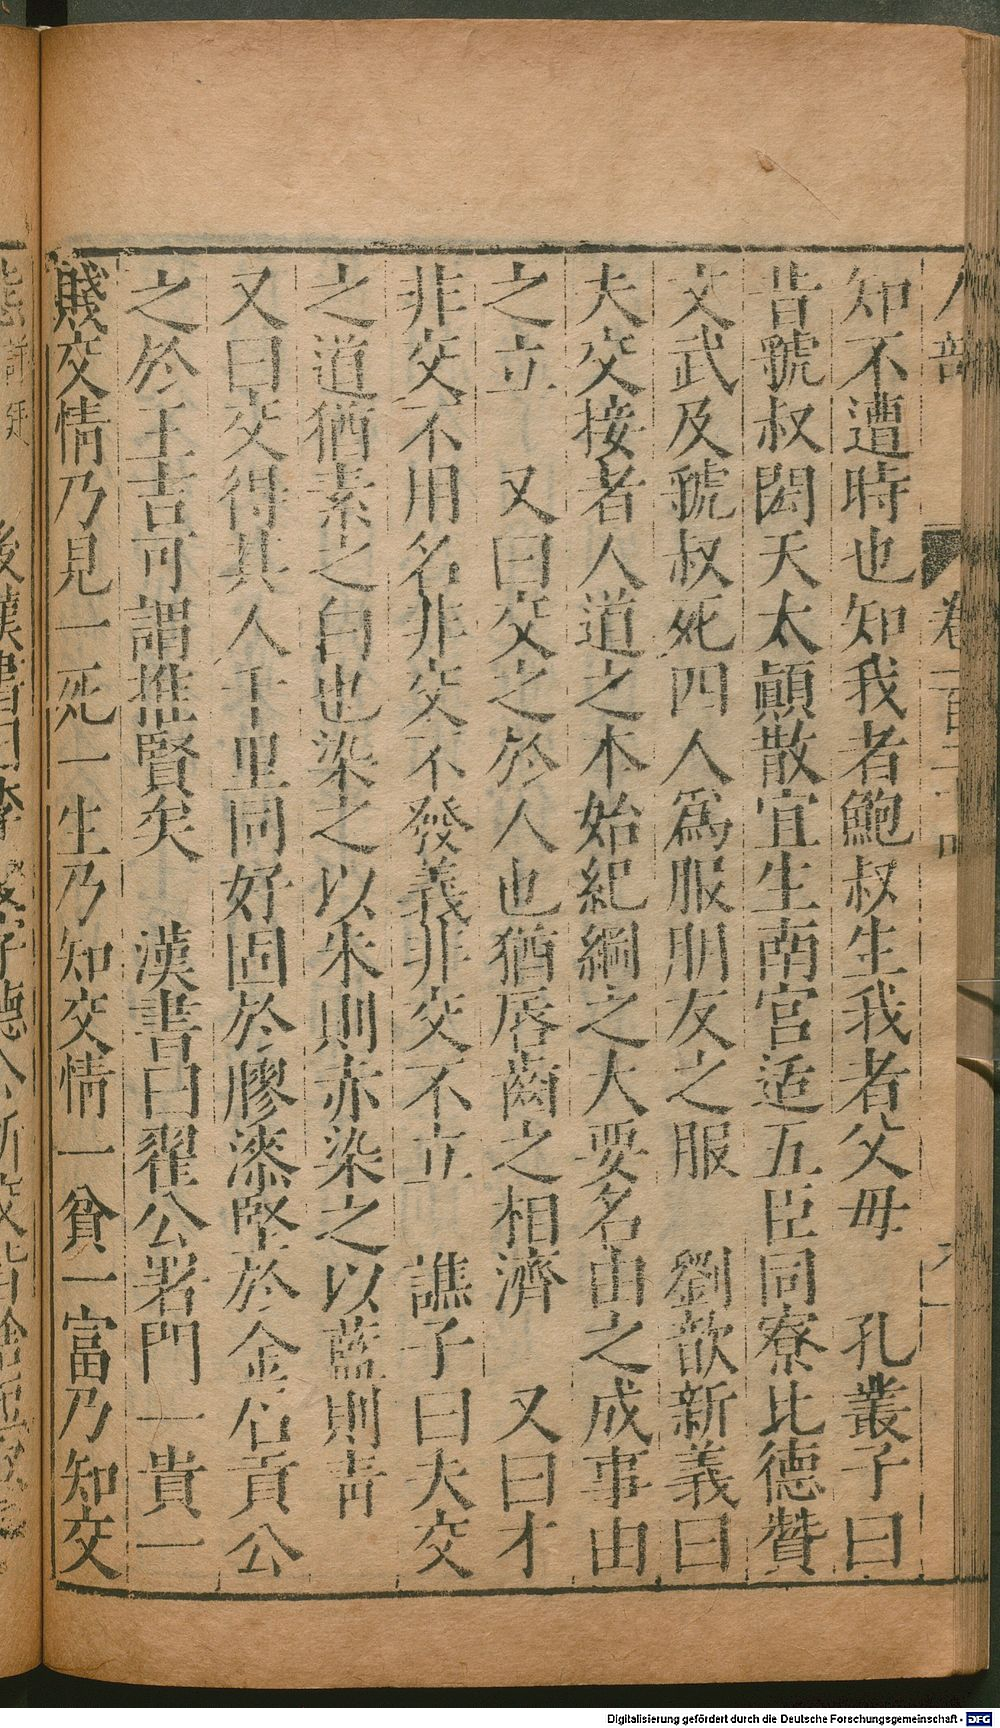 知不遭時也知我者鮑叔生我者父母　孔叢子曰
昔虢叔閎夭太顛散宜生南宮适五臣同寮比德贊
文武及虢叔死四人爲服朋友之服　劉歆新義曰
夫交接者人道之本始紀綱之大要名由之成事由
之立　又曰交之於人也猶唇齒之相濟　又曰才
非交不用名非交不發義非交不立　譙子曰夫交
之道猶素之白也染之以朱則赤染之以藍則青
又曰交得其人千里同好固於膠漆堅於金石貢公
之於王吉可謂推賢矣　漢書曰翟公署門一貴一
賤交情乃見一死一生乃知交情一貧一富乃知交
Digitalisierung gefördert durch die Deutsche Forschungsgemeinschaft - DFG